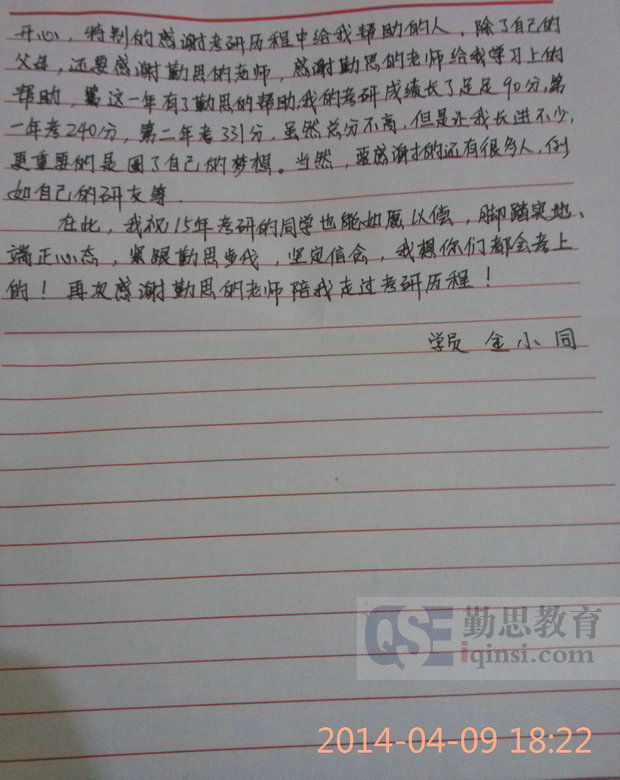 开心，特别的感谢考研历程中给我帮助的人，除了自己的
父母，还要感谢勤思的老师，感谢勤思的老师给我学习上的
帮助，这一年有了勤思的帮助，我的考研成绩长了足足90分，第
一年考240分，第二年考331分，虽然总分不高，但是让我长进不少，
更重要的是圆了自己的梦想。当然，要感谢的还有很多人，例
如自己的研友等．
在此，我祝15年考研的同学也能如愿以偿，脚踏实地、
端正心态，紧跟勤思步伐，坚定信念，我想你们都会考上
的！再次感谢勤思的老师陪我走过考研历程！
学员 金小同
QSE 勤思教育
iqinsi.com
2014-04-09 18:22